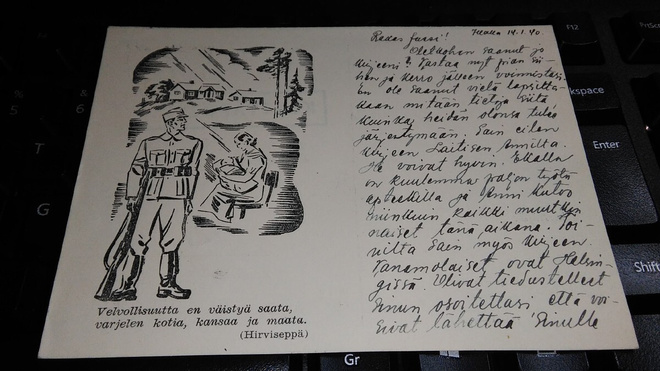 Velvollisuutta en väistyä saata,
varjelen kotia, kansaa ja maata.
(Hirviseppä)
Rakas Jussi!
14.1.40.
Oletkohan saanut jo
kirjeeni? Vastaa nyt pian sii-
hen ja kerro jälleen voinnistasi.
En ole saanut vielä lapsilta-
kaan mitään tietoja siitä
kuinka heidän olonsa tulee
järjestymään. Sain eilen
kirjeen Laitisen Annilta.
He voivat hyvin. Ekalla
on kuulemma paljon työtä
ja Anni kutoo
niinkuin kaikki muutkin
naiset tänä aikana. Toi-
vilta sain myös kirjeen.
Vanamolaiset ovat Helsin-
gissä. Olivat tiedustelleet
Sinun osoitettasi että voi-
sivat lähettää Sinulle
F12
Backspace
Enter
Shift
Ctrl
Gr
T
G